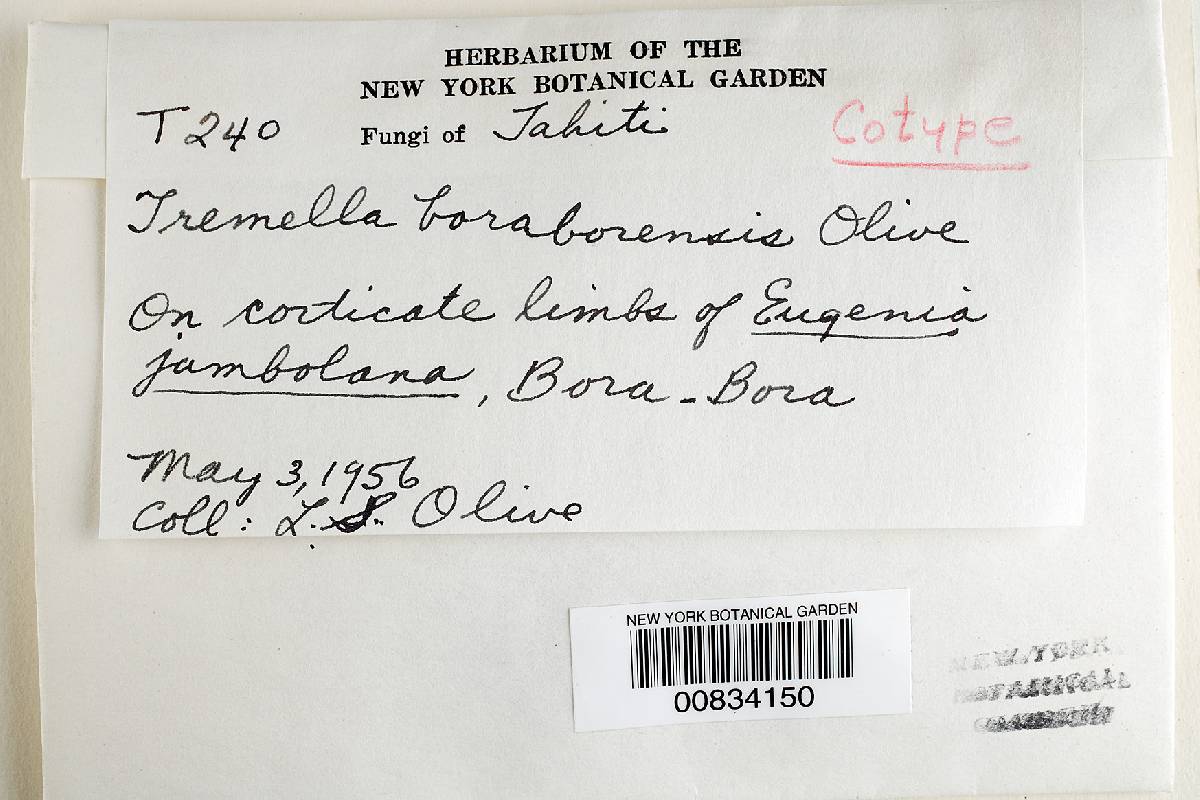 HERBARIUM OF THE
NEW YORK BOTANICAL GARDEN
T 240 Fungi of Tahiti Cotype
Tremella boraborensis Olive
On corticate limbs of Eugenia
jambolana, Bora-Bora
May 3, 1956
Coll: L. S. Olive
NEW YORK BOTANICAL GARDEN
00834150
NEW YORK
BOTANICAL
GARDEN